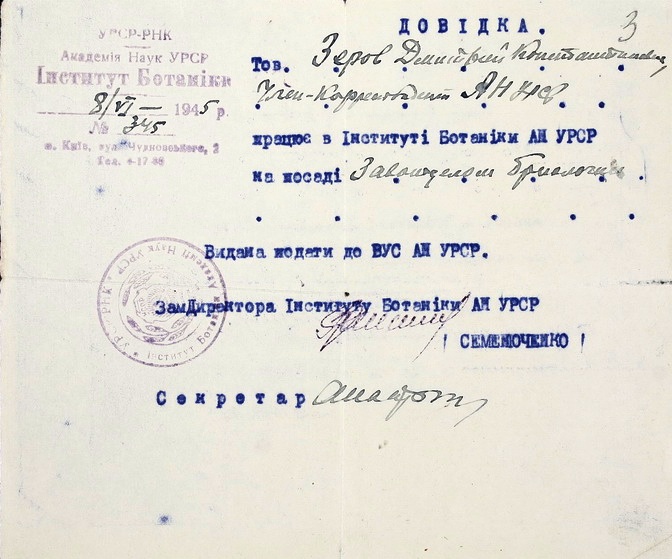 3
УРСР-РНК
Академія Наук УРСР
Інститут Ботаніки
8/VI — 1945 р.
№ 345
м. Київ, вул. Чудновського, 2
Тел. 4-17-
ДОВІДКА.
Тов. Зеров Дмитрий Константинович,
Член-Корреспондент АН УРСР
працює в Інституті Ботаніки АН УРСР
на посаді Завотделом Бриологии
Видана подати до ВУС АН УРСР.
ЗамДиректора Інституту Ботаніки АН УРСР
( СЕМЕНЮЧЕНКО )
Секретар
УРСР-РНК · Академія Наук УРСР · Інститут Ботаніки